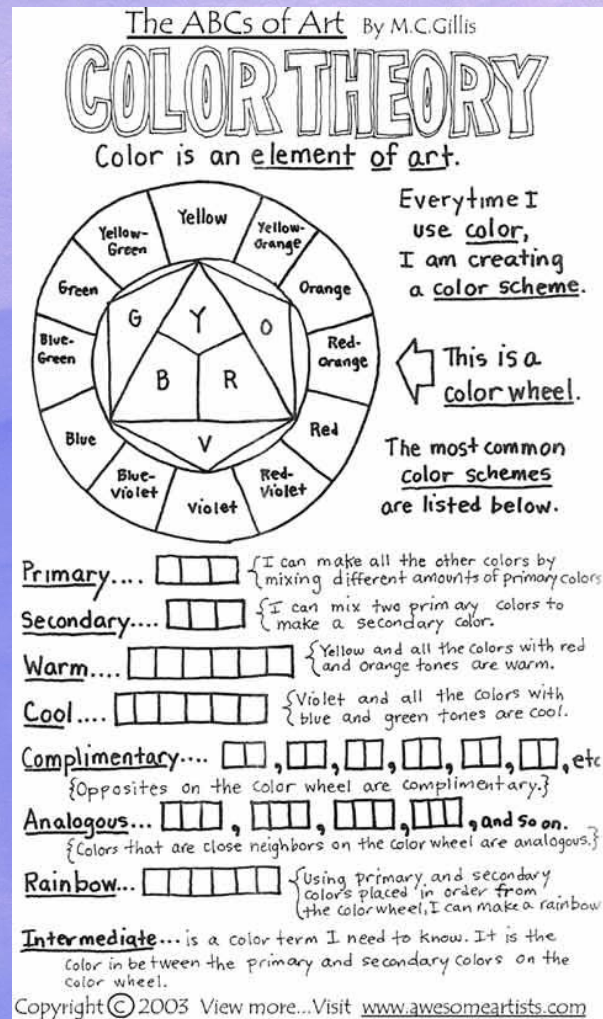 The ABCs of Art By M.C.Gillis
COLOR THEORY
Color is an element of art.
Yellow
Yellow-
Orange
Orange
Red-
Orange
Red
Red-
Violet
Violet
Blue-
Violet
Blue
Blue-
Green
Green
Yellow-
Green
G
Y
O
B
R
V
Everytime I
use color,
I am creating
a color scheme.
This is a
color wheel.
The most common
color schemes
are listed below.
Primary.... {I can make all the other colors by
mixing different amounts of primary colors
Secondary.... {I can mix two primary colors to
make a secondary color.
Warm.... {Yellow and all the colors with red
and orange tones are warm.
Cool.... {Violet and all the colors with
blue and green tones are cool.
Complimentary.... , , , , , , etc
{Opposites on the color wheel are complimentary.}
Analogous... , , , , and so on.
{Colors that are close neighbors on the color wheel are analogous.}
Rainbow... {Using primary and secondary
colors placed in order from
the color wheel, I can make a rainbow
Intermediate... is a color term I need to know. It is the
color in between the primary and secondary colors on the
color wheel.
Copyright © 2003 View more...Visit www.awesomeartists.com